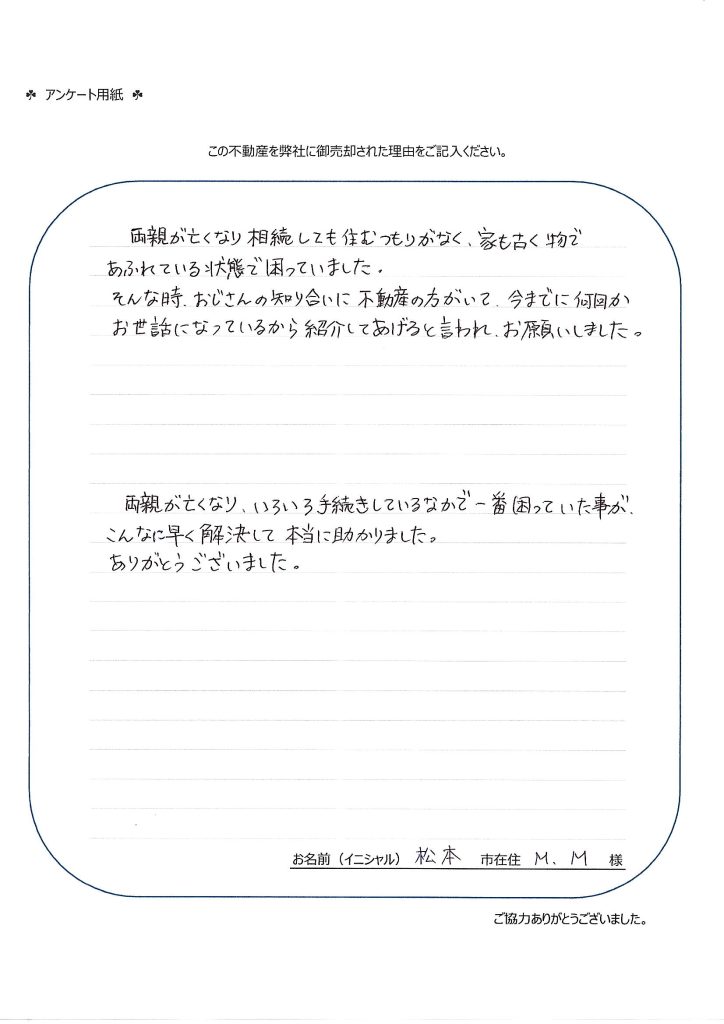 ☘ アンケート用紙 ☘
この不動産を弊社に御売却された理由をご記入ください。
両親が亡くなり相続しても住むつもりがなく、家も古く物で
あふれている状態で困っていました。
そんな時、おじさんの知り合いに不動産の方がいて、今までに何回か
お世話になっているから紹介してあげると言われ、お願いしました。
両親が亡くなり、いろいろ手続きしているなかで一番困っていた事が、
こんなに早く解決して本当に助かりました。
ありがとうございました。
お名前（イニシャル） 松本 市在住 M、M 様
ご協力ありがとうございました。